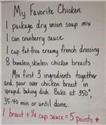 My Favorite Chicken
1 package dry onion soup mix
1 can cranberry sauce
1 cup fat-free creamy french dressing
8 boneless, skinless chicken breasts
Mix first 3 ingredients together
and pour over chicken breast in
sprayed baking dish. Bake at 350°,
35-40 min or until done.
1 breast + ¼ cup sauce = 5 points +